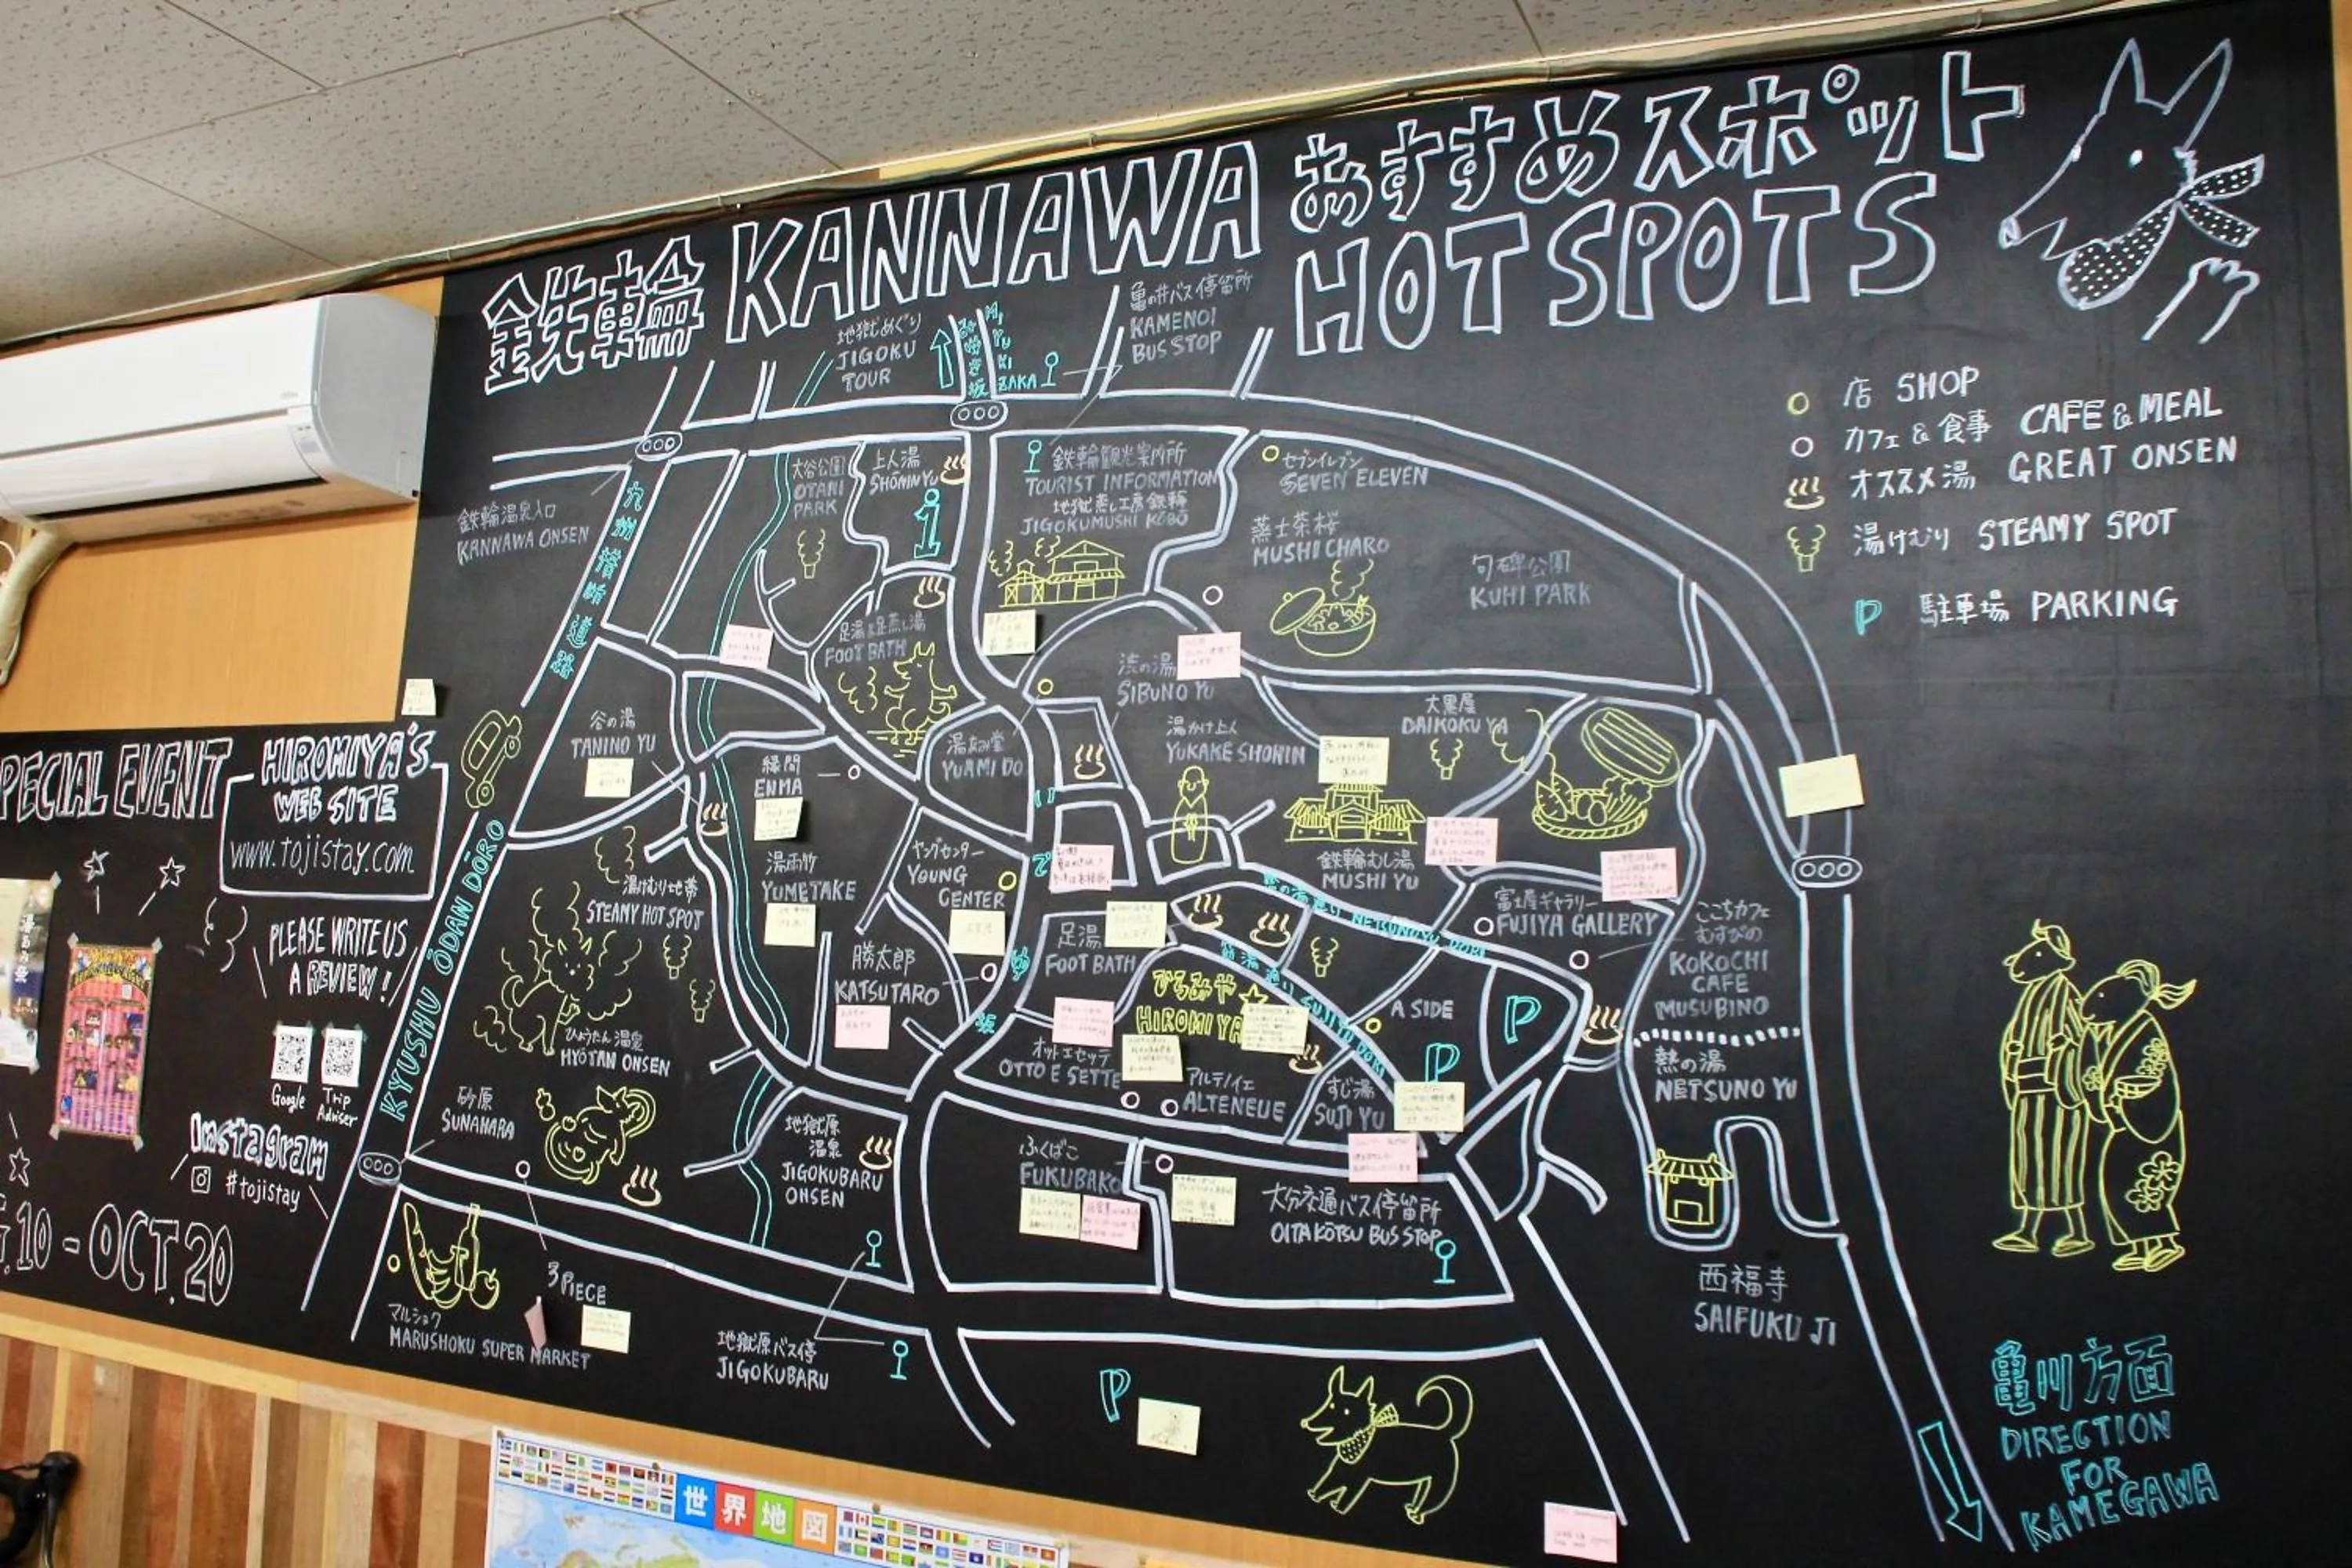 鉄輪 KANNAWA おすすめスポット
HOT SPOTS
店 SHOP
カフェ&食事 CAFE & MEAL
オススメ湯 GREAT ONSEN
湯けむり STEAMY SPOT
P 駐車場 PARKING
地獄めぐり
JIGOKU
TOUR
みゆき坂
MIYUKI
ZAKA
亀の井バス停留所
KAMENOI
BUS STOP
鉄輪温泉入口
KANNAWA ONSEN
九州横断道路
大谷公園
OTANI
PARK
上人湯
SHŌNIN YU
i
鉄輪観光案内所
TOURIST INFORMATION
地獄蒸し工房鉄輪
JIGOKUMUSHI KŌBŌ
セブンイレブン
SEVEN ELEVEN
蒸士茶楼
MUSHI CHARO
句碑公園
KUHI PARK
足湯&足蒸し湯
FOOT BATH
渋の湯
SIBUNO YU
谷の湯
TANINO YU
縁間
ENMA
湯あみ堂
YUAMI DO
湯かけ上人
YUKAKE SHONIN
大黒屋
DAIKOKU YA
湯雨竹
YUMETAKE
ヤングセンター
YOUNG
CENTER
鉄輪むし湯
MUSHI YU
富士屋ギャラリー
FUJIYA GALLERY
ここちカフェ
むすびの
KOKOCHI
CAFE
MUSUBINO
湯けむり地帯
STEAMY HOT SPOT
勝太郎
KATSUTARO
足湯
FOOT BATH
いでゆ坂
熱の湯通り NETSUNOYU DORI
筋湯通り SUJIYU DORI
ひろみや
HIROMIYA
A SIDE
P
P
熱の湯
NETSUNO YU
ひょうたん温泉
HYŌTAN ONSEN
オットエセッテ
OTTO E SETTE
アルテノイエ
ALTENEUE
すじ湯
SUJI YU
砂原
SUNAHARA
地獄原
温泉
JIGOKUBARU
ONSEN
ふくばこ
FUKUBAKO
大分交通バス停留所
OITA KŌTSU BUS STOP
西福寺
SAIFUKU JI
3 PIECE
マルショク
MARUSHOKU SUPER MARKET
地獄原バス停
JIGOKUBARU
P
亀川方面
DIRECTION
FOR
KAMEGAWA
KYUSHU ŌDAN DŌRO
PECIAL EVENT
HIROMIYA'S
WEB SITE
www.tojistay.com
PLEASE WRITE US
A REVIEW!
Google
Trip
Adviser
Instagram
#tojistay
.10 - OCT.20
世界地図